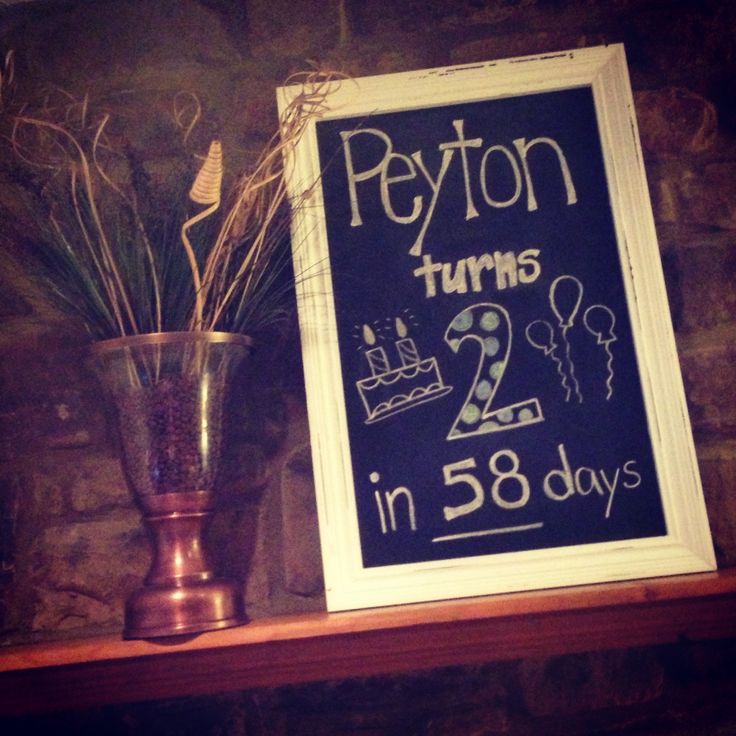 Peyton
turns
2
in 58 days